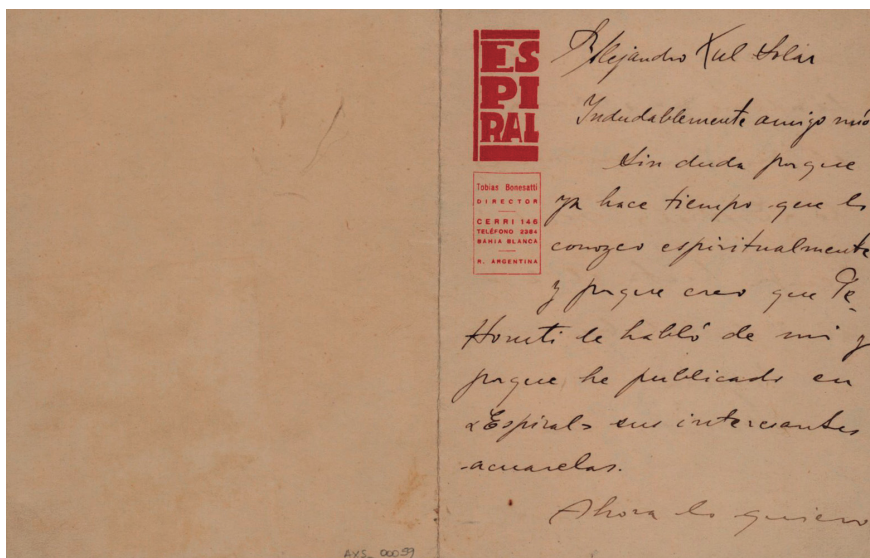 ES
PI
RAL
Tobías Bonesatti
DIRECTOR
CERRI 146
TELÉFONO 2284
BAHIA BLANCA
R. ARGENTINA
Alejandro Xul Solar
Indudablemente amigo mío
Sin duda porque
ya hace tiempo que lo
conozco espiritualmente
y porque creo que Pe-
ttoruti le habló de mi y
porque he publicado en
«Espiral» sus interesantes
acuarelas.
Ahora lo quiero
AXS_00099